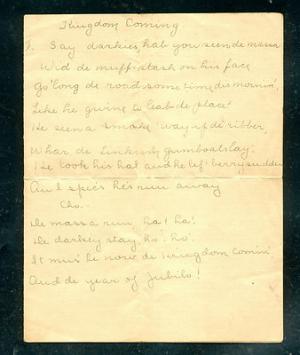 Kingdom Coming
1. Say darkies, hab you seen de massa
Wid de muffstash on his face
Go 'long de road some time dis mornin',
Like he gwine to leab de place?
He seen a smoke 'way up de ribber,
Whar de Linkum gumboats lay;
He took his hat and he lef' berry sudden
And I spec's he's run away
Cho.
De massa run, ha! ha!
De darkey stay, ho! ho!
It mus' be now de Kingdom comin'
And de year of Jubilo!